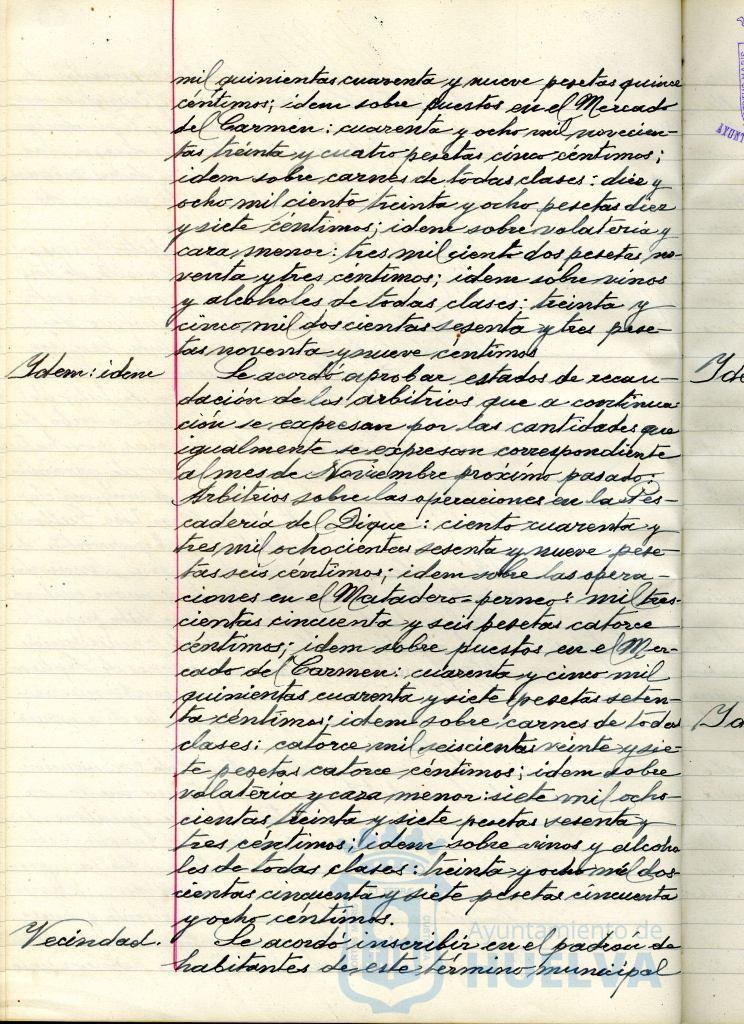 mil quinientas cuarenta y nueve pesetas quince
céntimos; idem sobre puestos en el Mercado
del Carmen: cuarenta y ocho mil novecien-
tas treinta y cuatro pesetas cinco céntimos;
idem sobre carnes de todas clases: diez y
ocho mil ciento treinta y ocho pesetas diez
y siete céntimos; idem sobre volatería y
caza menor: tres mil ciento dos pesetas no-
venta y tres céntimos; idem sobre vinos
y alcoholes de todas clases: treinta y
cinco mil doscientas sesenta y tres pese-
tas noventa y nueve centimos
Idem: idem
Se acordó aprobar estados de recau-
dación de los arbitrios que a continua-
ción se expresan por las cantidades que
igualmente se expresan correspondiente
al mes de Noviembre próximo pasado:
Arbitrios sobre las operaciones en la Pes-
cadería del Dique: ciento cuarenta y
tres mil ochocientas sesenta y nueve pese-
tas seis céntimos; idem sobre las opera-
ciones en el Matadero=perneo: mil tres-
cientas cincuenta y seis pesetas catorce
céntimos; idem sobre puestos en el Mer-
cado del Carmen: cuarenta y cinco mil
quinientas cuarenta y siete pesetas seten-
ta céntimos; idem sobre carnes de todas
clases: catorce mil seiscientas veinte y sie-
te pesetas catorce céntimos; idem sobre
volatería y caza menor: siete mil ocho-
cientas treinta y siete pesetas sesenta y
tres céntimos; idem sobre vinos y alcoho
les de todas clases: treinta y ocho mil dos-
cientas cincuenta y siete pesetas cincuenta
y ocho centimos.
Vecindad.
Se acordó inscribir en el padrón de
habitantes de este término municipal
Ayuntamiento de
HUELVA